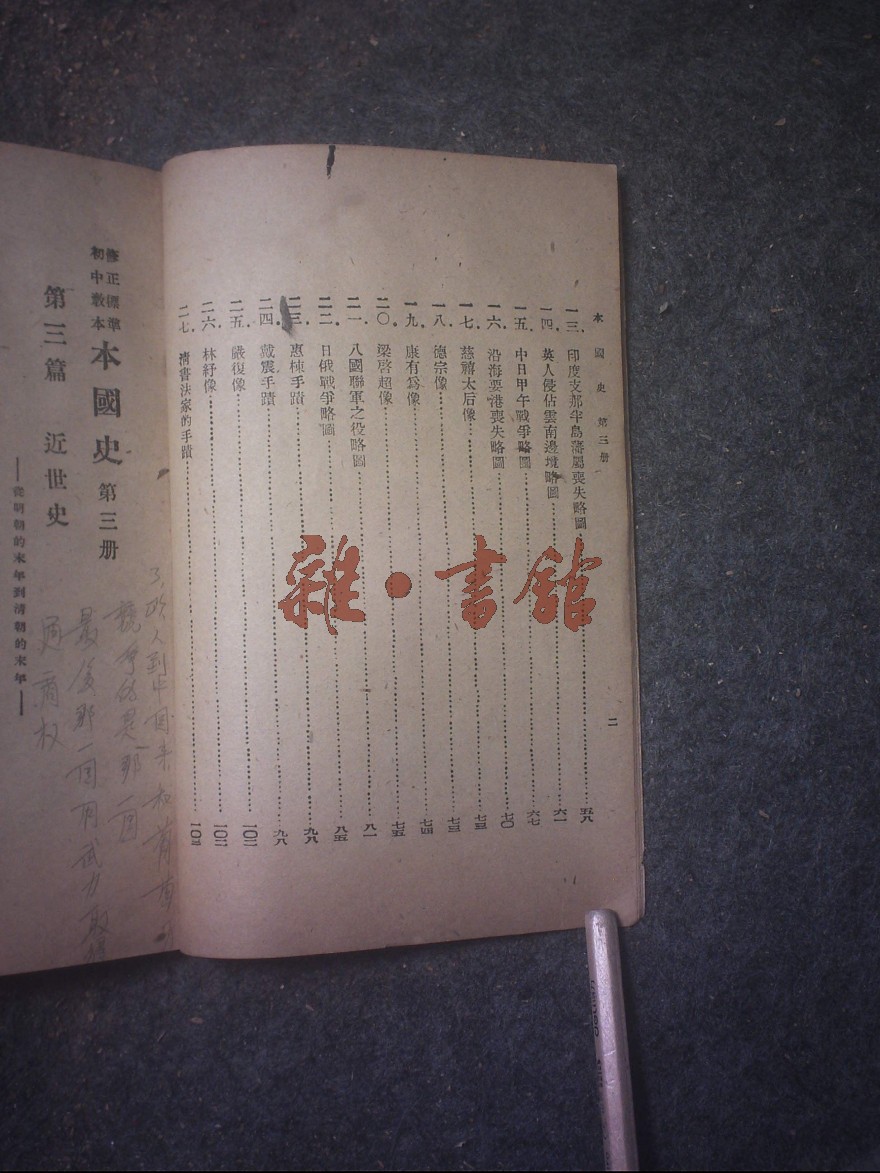 本國史 第三册
二
一三．印度支那半島藩屬喪失略圖……五八
一四．英人侵佔雲南邊境略圖……六一
一五．中日甲午戰爭略圖……六七
一六．沿海要港喪失略圖……七〇
一七．慈禧太后像……七三
一八．德宗像……七三
一九．康有爲像……七四
二〇．梁啓超像……七五
二一．八國聯軍之役略圖……八一
二二．日俄戰爭略圖……八五
二三．惠棟手蹟……九八
二四．戴震手蹟……九八
二五．嚴復像……一〇二
二六．林紓像……一〇二
二七．清書法家的手蹟……一〇三
雜·書館
修正標準
初中教本
本國史 第三册
第三篇 近世史
——從明朝的末年到清朝的末年——
最後那一国用武力取得